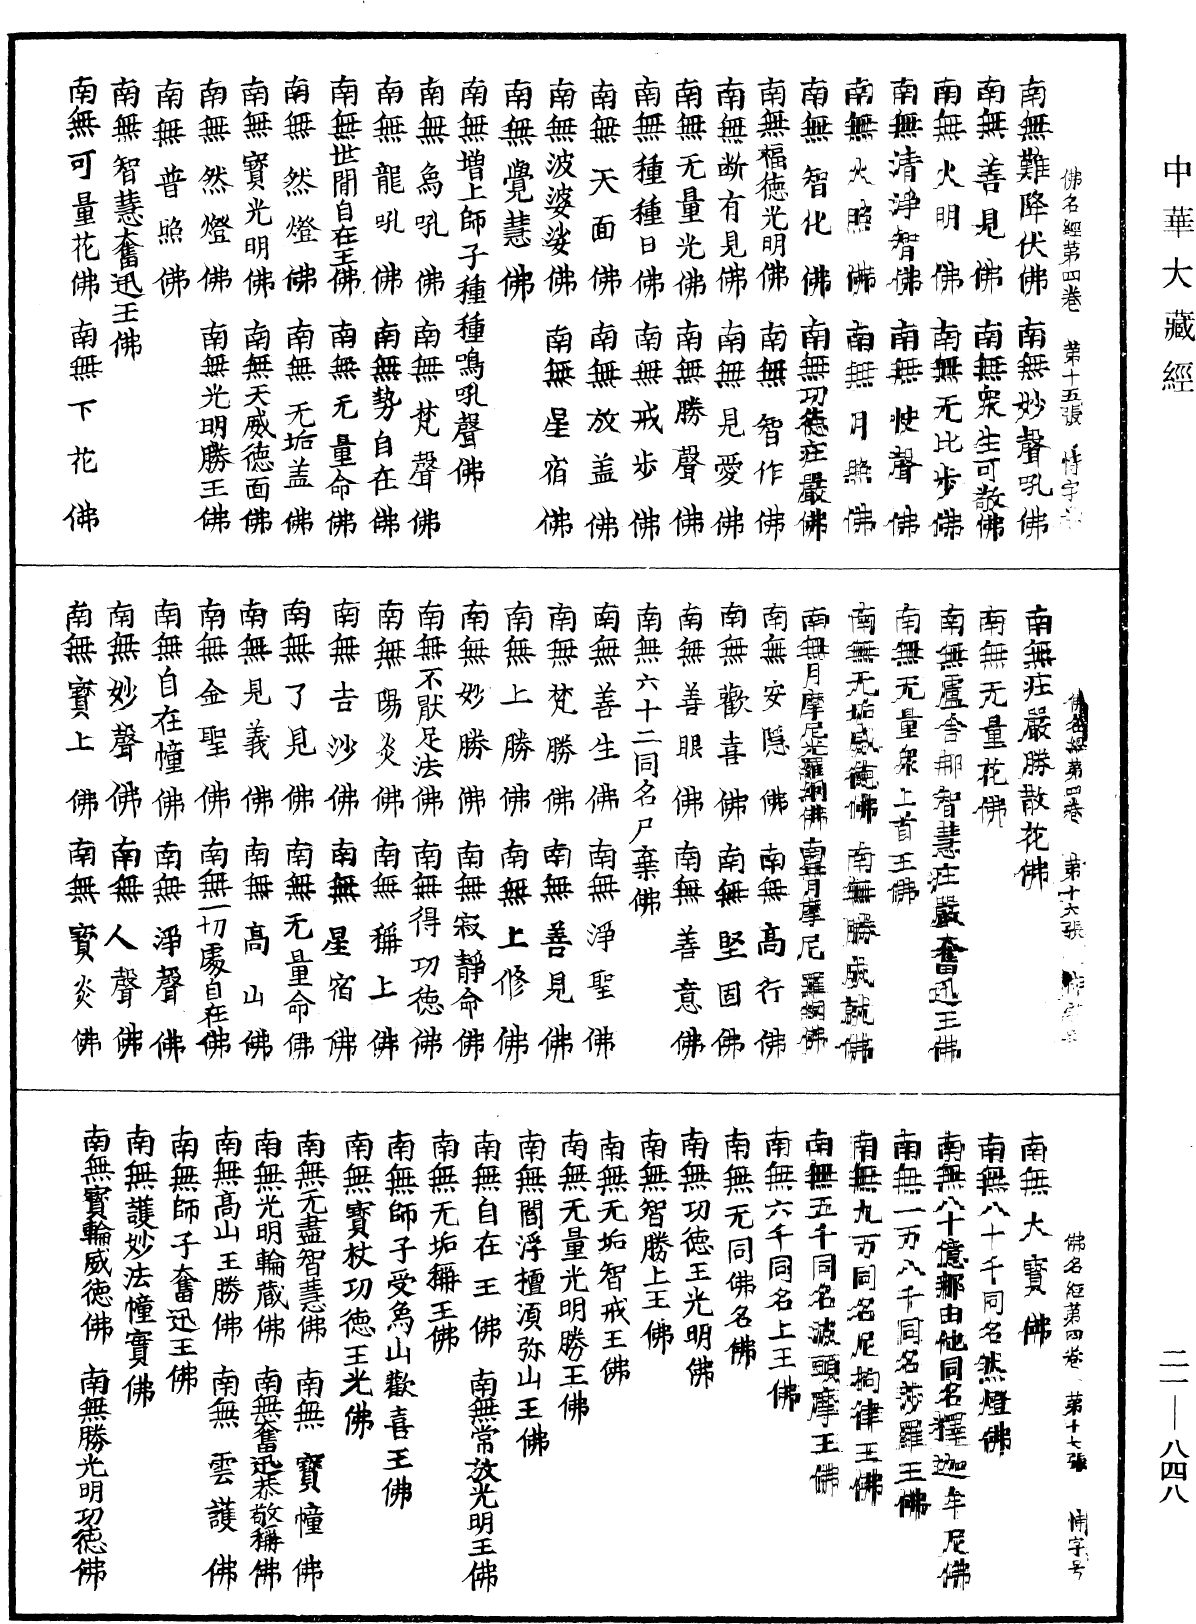 中華大藏經
佛名經第四卷 第十五張 字
南無難降伏佛 南無妙聲吼佛
南無善見佛 南無眾生可敬佛
南無火明佛 南無无比步佛
南無清淨智佛 南無使聲佛
南無火照佛 南無月照佛
南無智化佛 南無功德莊嚴佛
南無福德光明佛 南無智作佛
南無断有見佛 南無見愛佛
南無无量光佛 南無勝聲佛
南無種種日佛 南無戒步佛
南無天面佛 南無放盖佛
南無波婆娑佛 南無星宿佛
南無覺慧佛
南無增上師子種種鳴吼聲佛
南無為吼佛 南無梵聲佛
南無龍吼佛 南無勢自在佛
南無世間自在王佛 南無无量命佛
南無然燈佛 南無无垢盖佛
南無寶光明佛 南無天威德面佛
南無然燈佛 南無光明勝王佛
南無普照佛
南無智慧奮迅王佛
南無可量花佛 南無下花佛
佛名經第四卷 第十六張
南無莊嚴勝散花佛
南無无量花佛
南無盧舍那智慧莊嚴奮迅王佛
南無无量眾上首王佛
南無无垢威德佛 南無勝成就佛
南無月摩尼光羅網佛 南無月摩尼羅網佛
南無安隱佛 南無高行佛
南無歡喜佛 南無堅固佛
南無善眼佛 南無善意佛
南無六十二同名尸棄佛
南無善生佛 南無淨聖佛
南無梵勝佛 南無善見佛
南無上勝佛 南無上修佛
南無妙勝佛 南無寂靜命佛
南無不猒足法佛 南無得功德佛
南無陽炎佛 南無稱上佛
南無吉沙佛 南無星宿佛
南無了見佛 南無无量命佛
南無見義佛 南無高山佛
南無金聖佛 南無一切處自在佛
南無自在幢佛 南無淨聲佛
南無妙聲佛 南無人聲佛
南無寶上佛 南無寶炎佛
佛名經第四卷 第十七張 情字号
南無大寶佛
南無八十千同名然燈佛
南無八十億那由他同名釋迦牟尼佛
南無一万八千同名莎羅王佛
南無九万同名尼拘律王佛
南無五千同名波頭摩王佛
南無六千同名上王佛
南無无同佛名佛
南無功德王光明佛
南無智勝上王佛
南無无垢智戒王佛
南無无量光明勝王佛
南無閻浮檀須弥山王佛
南無自在王佛 南無常放光明王佛
南無无垢稱王佛
南無師子受為山歡喜王佛
南無寶杖功德王光佛
南無无盡智慧佛 南無寶幢佛
南無光明輪藏佛 南無奮迅恭敬稱佛
南無高山王勝佛 南無雲護佛
南無師子奮迅王佛
南無護妙法幢寶佛
南無寶輪威德佛 南無勝光明功德佛
二一—八四八